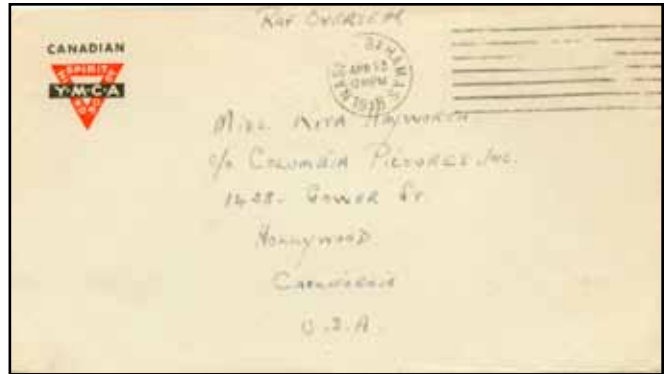 RAF OVERSEAS
CANADIAN
SPIRIT
Y·M·C·A
BODY
BAHAMAS
NASSAU
APR 13
PM
Miss Rita Hayworth
c/o Columbia Pictures Inc.
1438 - Gower St
Hollywood
California
U.S.A.